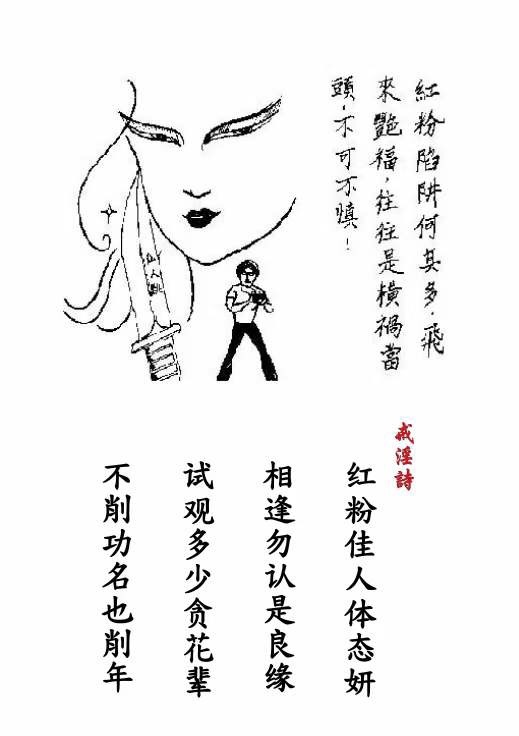 紅粉陷阱何其多，飛
來艷福，往往是橫禍當
頭，不可不慎！
戒淫詩
红粉佳人体态妍
相逢勿认是良缘
试观多少贪花辈
不削功名也削年